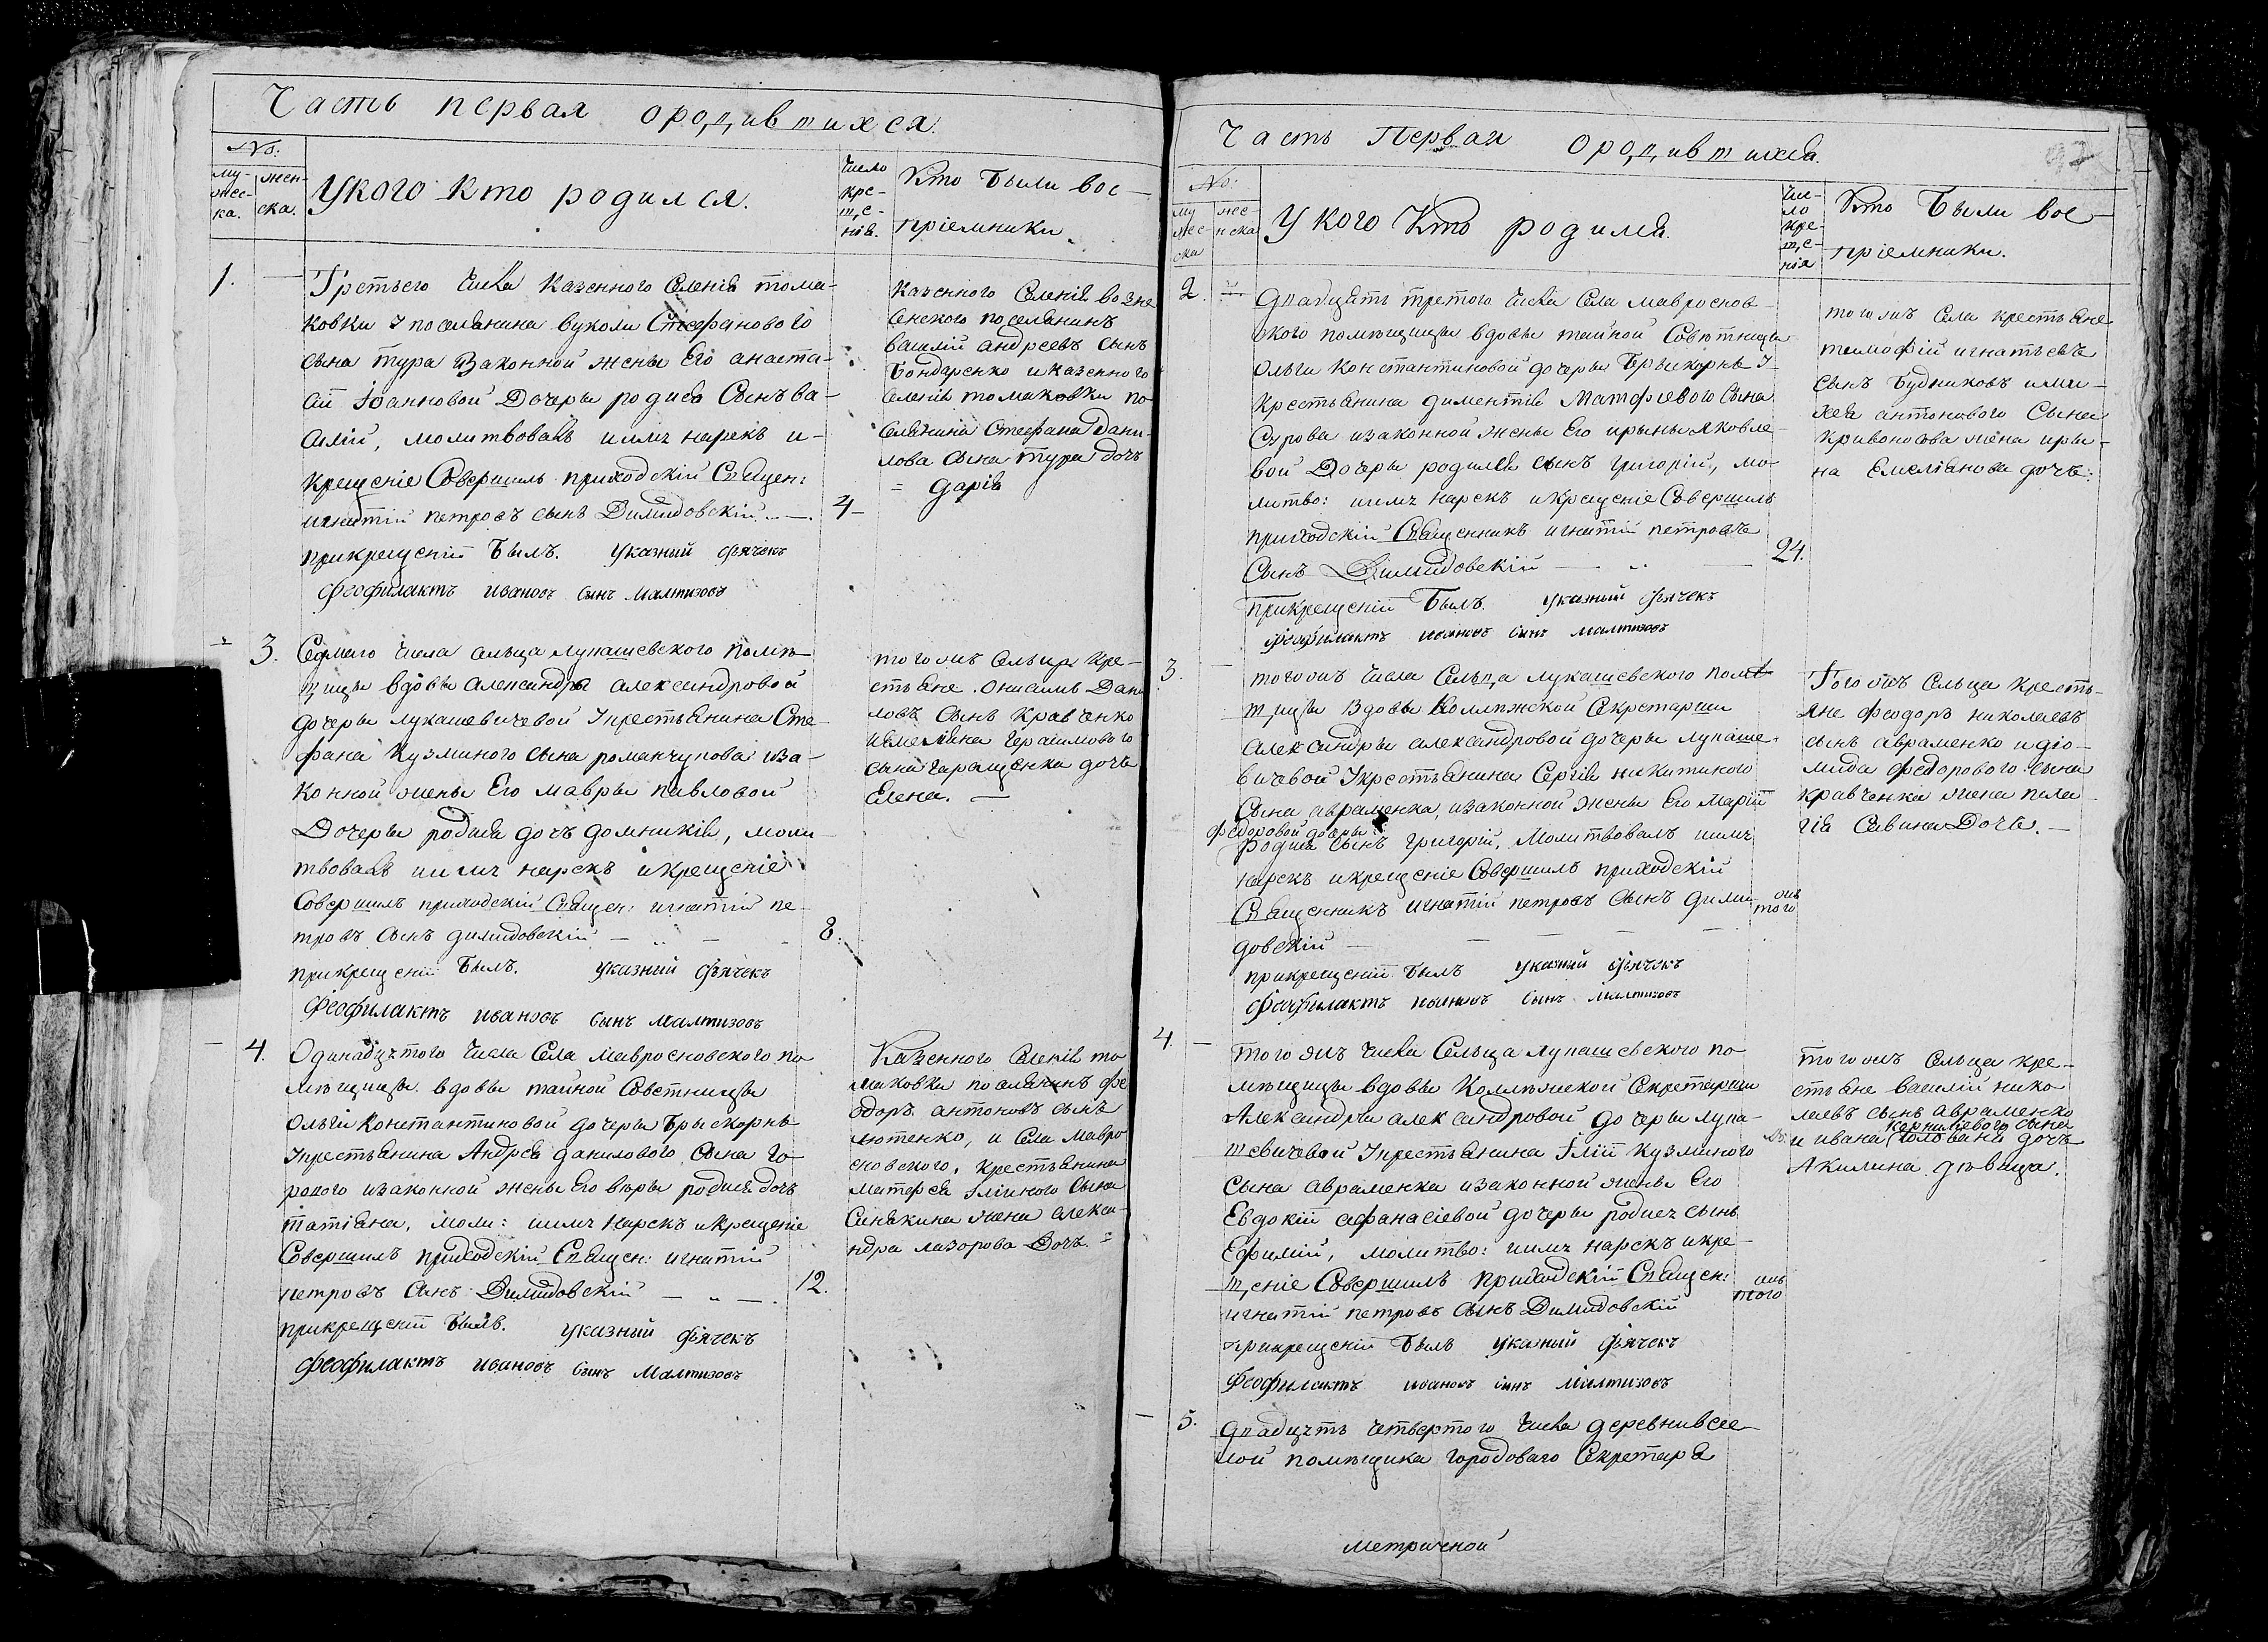 Часть первая о родившихся.
No:
му-
жес-
ка.
жен-
ска.
У кого кто родился.
Число
кре-
ще-
нія.
Кто были вос-
пріемники.
1. —
Третьего числа казенного селенія тома-
ковки у поселянина вуколи Стефанового
сына тура и законной жены Его анаста-
сіи Іоанновой Дочеры родися Сынъ ва-
силій, молитвовалъ и имя нарекъ и-
крещеніе Совершилъ приходскій Священ:
игнатій петровъ сынъ Димидовскій — 4
прикрещеніи былъ. указный дьячекъ
Феофилактъ ивановъ сынъ Малтизовъ
казенного Селенія возне
сенского поселянинъ
василій андреевъ сынъ
Бондаренко и казенного
селенія томаковки по
селянина Стефана Дани-
лова сына тура дочъ
= дарія
3. Седмаго числа сельца лукашевского помѣ-
щицы вдовы александры александровой
дочеры лукашевичевой У крестьянина Сте-
фана кузминого сына романчукова и за-
конной жены Его мавры павловой
Дочеры родися дочъ домникія, моли-
твовалъ и имя нарекъ и крещеніе
Совершилъ приходскій Священ: игнатій пе-
тровъ сынъ димидовскій — „ — 8.
прикрещеніи былъ. указний дьячекъ
Феофилактъ ивановъ сынъ малтизовъ
того жъ сельца кре-
стьяне. Онисимъ Дани
ловъ сынъ кравченко
и емеляна герасимового
сына геращенка дочъ
Елена. —
4. Одинадцятого числа Села мавроеновского по
мѣщицы вдовы тайной Советницы
Ольги константиновой дочеры Брыскорнъ
У крестьянина Андрея данилового сына го-
рового и законной жены Его вѣры родися дочъ
татіана, моли: и имя нарекъ и крещеніе
Совершилъ приходскій Священ: игнатій
петровъ сынъ Димидовскій — „ — 12.
прикрещеніи былъ. указный дьячекъ
Феофилактъ ивановъ сынъ Малтизовъ
Казенного Селенія то
маковки поселянинъ фе
одоръ антоновъ сынъ
лютенко, и Села мавро
еновского, крестьянина
матфея іліиного сына
Синякина жена алекса-
ндра лазорова Дочъ. =
Часть Первая о родившихся.
97
No:
му
жес
ска
же-
нска
У кого Кто родился.
Чис-
ло
кре-
ще-
нія
Кто Были вос-
пріемники.
2. Двадцять третого числа села мавроенов-
ского помѣщицы вдовы тайной Совѣтницы
Ольги константиновой дочеры Брыскорнъ У-
крестьянина диментія Матфіевого сына
Сурова и законной жены Его ирыны яковле-
вой Дочеры родился сынъ григорій, мо-
литво: и имя нарекъ и крещеніе Совершилъ
приходскій Священникъ игнатій петровъ
Сынъ Димидовскій — „ — 24.
прикрещеніи Былъ. указний дьячекъ
феофилактъ ивановъ сынъ малтизовъ
того жъ села крестьяне
тимофій игнатьевъ
сынъ Будниковъ и ми-
хея антонового сына
кривоносова жена иры-
на Емеліанова дочъ:
3. — того жъ числа Сельца лукашевского помѣ
щицы вдовы Коллѣжской Секретарши
александры александровой дочеры лукаше-
вичевой У крестьянина Сергія никитиного
Сына авраменка, и законной жены Его Маріи
федоровой дочеры
родися сынъ григорій. Молитвовалъ и имя
нарекъ и крещеніе Совершилъ приходскій
Священникъ игнатій петровъ сынъ дими- того жъ
довскій — — — — —
прикрещеніи былъ указный дьячекъ
Феофилактъ ивановъ сынъ малтизовъ
Того жъ Сельца кресть-
яне феодоръ николаевъ
сынъ авраменко и діо-
мида федорового сына
кравченка жена пела
гія Савина Дочъ. —
4. — того жъ числа Сельца лукашевского по
мѣщицы вдовы Коллѣжской Секретарши
Александры александровой дочеры лука-
шевичевой У крестьянина Іліи кузминого
Сына авраменка и законной жены Его
Евдокіи афанасіевой дочеры родися сынъ
Ефимій, молитво: и имя нарекъ и кре-
щеніе Совершилъ приходскій Священ: того жъ
игнатій петровъ сынъ Димидовскій
прикрещеніи былъ указный дьячекъ
Феофилактъ ивановъ сынъ Малтизовъ
того жъ сельца кре-
стьяне василій нико
лаевъ сынъ авраменко
корниліевого сына
и ивана Головани дочъ
Акилина дѣвица.
— 5. двадцять четвертого числа деревни весе-
лой помѣщика городоваго Секретаря
метричной